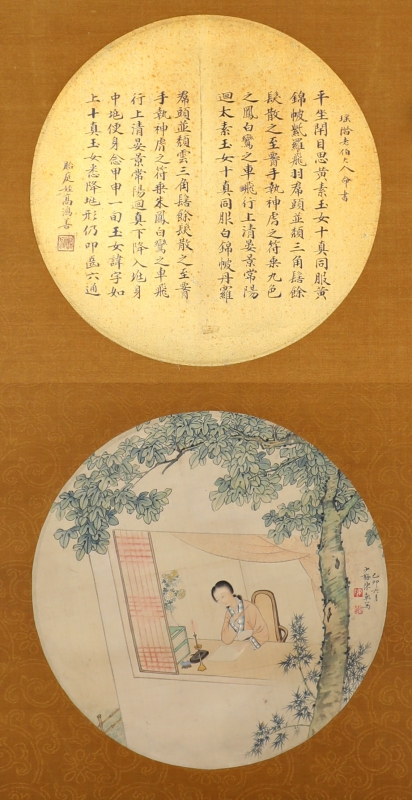 平坐閉目思黃素玉女十真同服黃
錦帔紫羅飛羽羣頭並頹三角髻餘
髮散之至腰手執神虎之符乘九色
之鳳白鸞之車飛行上清晏景常陽
迴太素玉女十真同服白錦帔丹羅
羣頭並頹雲三角髻餘髮散之至腰
手執神虎之符乘朱鳳白鸞之車飛
行上清晏景常陽迴真下降入兆身
中兆便身念甲申一旬玉女諱字如
上十真玉女悉降兆形仍叩齒六通
高鴻
己卯